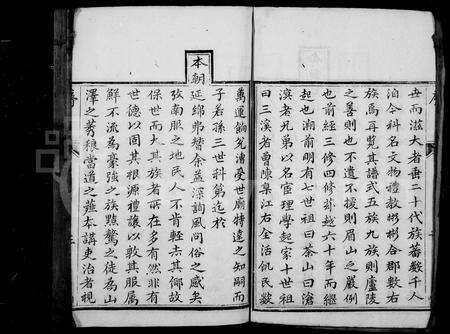 毋而滋大者垂二十代族蕃數千人
洎今科名文物禮教彬彬合郡數右
族焉再覽其譜式五族九族則廬陵
之善則也不遺不援則眉山之嚴例
也前經三修四修莽越六十年而經
起也溯前明有七世祖曰茶山曰滄
溟者兄弟以名宦理學起家十世祖
曰三溪者曾陳集江右全活飢民數
萬運餉先漕受世廟特達之知嗣而
子若孫三世科第迄於
本朝
延綿弗替余益深詢風問俗之感矣
攷南服之地民人不肯輕去其鄉故
保世而大其族者所在多有然非有
世德以固其根源禮讓以敦其服屬
鮮不流為豪強之族黠騺之徒為山
澤之莠稂當道之薤本講吏治者視
序
三